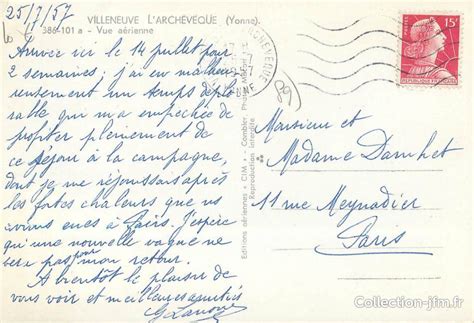 25/7/57
VILLENEUVE L'ARCHEVÊQUE (Yonne)
386-101 a - Vue aérienne
Arrivée ici le 14 juillet pour
2 semaines; j'ai eu malheu
reusement un temps déplo
rable qui m'a empêchée de
profiter pleinement de
ce séjour à la campagne,
dont je me réjouissais après
les fortes chaleurs que nous
avons eues à Paris. J'espère
qu'une nouvelle vague ne
sera pas pour mon retour.
A bientôt le plaisir de
vous voir et meilleures amitiés
Editions aériennes « CIM » Combier
Reproduction interdite
15F
Monsieur et
Madame
11 rue Meynadier
Paris
Collection-jfm.fr